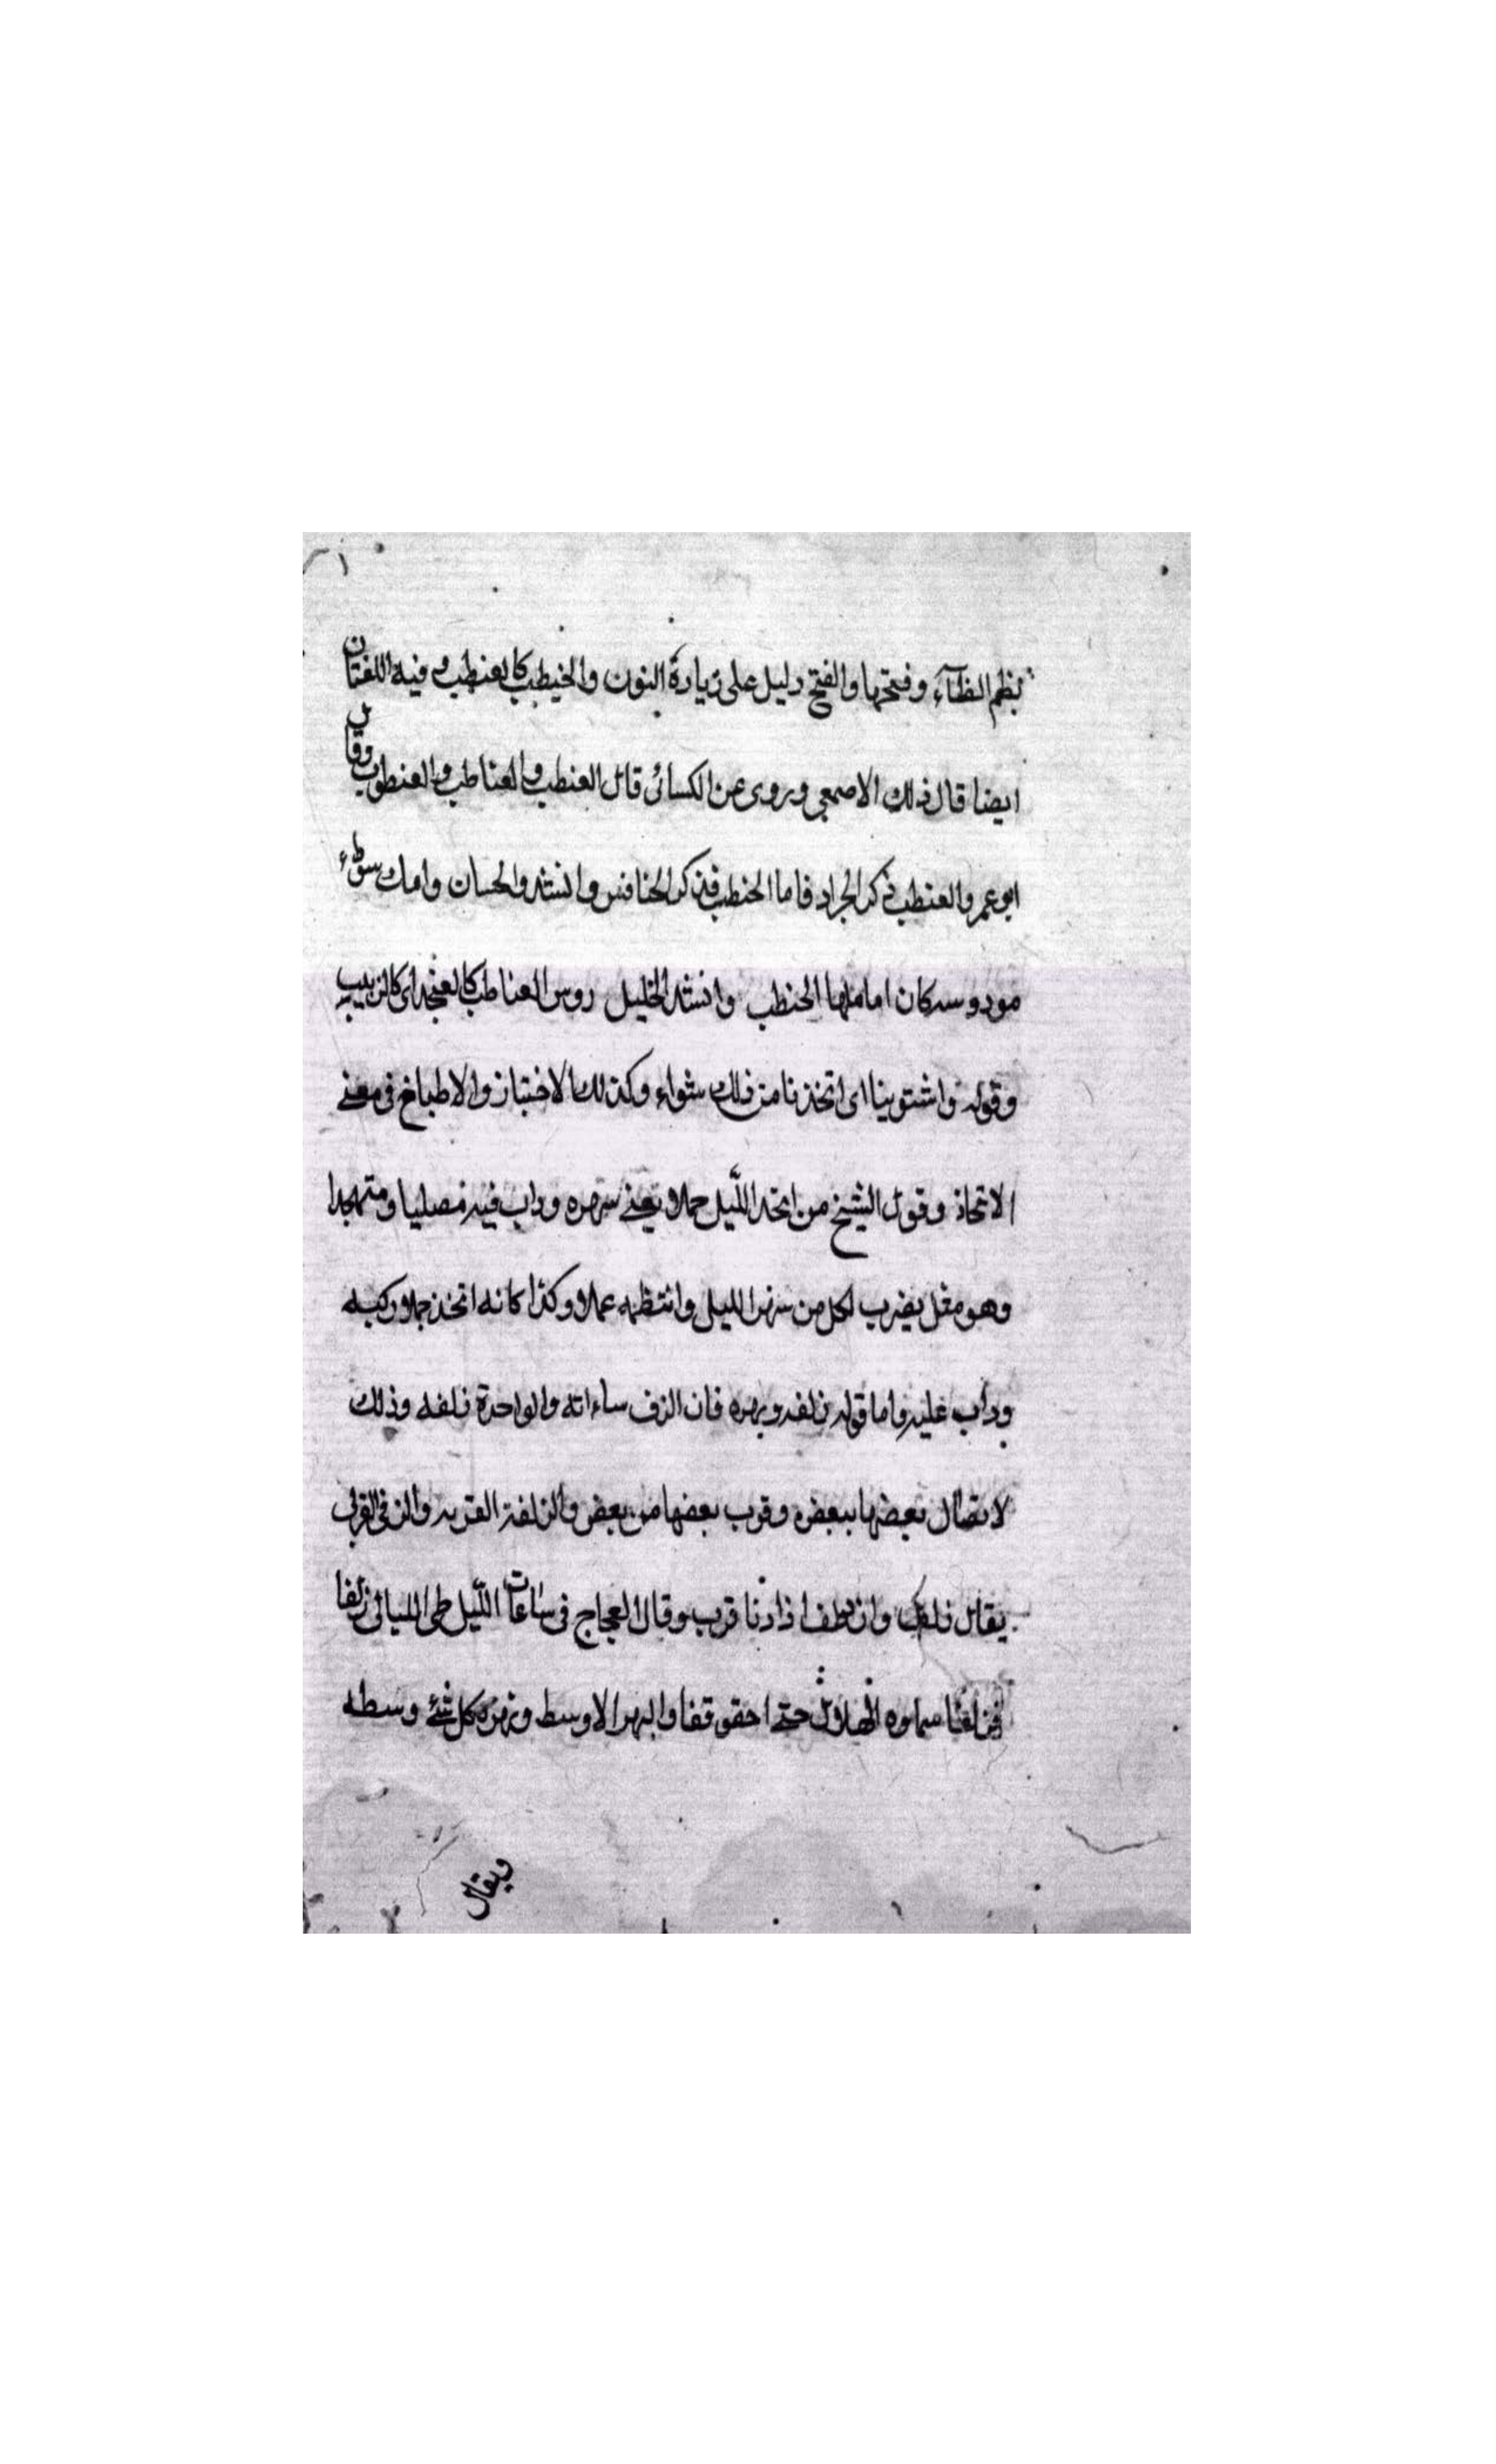 بضم الظاء وفتحها والفتح دليل على زيادة النون والخيطب كالعنطب وفيه اللغتان
ايضا قال ذلك الاصمعي وروى عن الكسائى قال العنطب والعناطب والعنطوب وقال
ابو عمرو العنطب ذكر الجراد فاما الحنطب فذكر الخنافس وانشد والحسان وامك سوداء
مودوسه كان اناملها الحنطب وانشد الخليل روس العناطب كالعنجد اى كالزبيب
وقوله واشتوينا اى اتخذنا من ذلك شواء وكذلك الاختباز والاطباخ فى معنى
الاتخاذ وقول الشيخ من اتخذ الليل جملا يعنى سهره وداب فيه مصليا ومتهجدا
وهو مثل يضرب لكل من سهر الليل وانتظمه عملا وكذا كانه اتخذ جملا ركبه
وداب عليه واما قوله زلفه وبهره فان الزلف ساعاته والواحدة زلفه وذلك
لاتصال بعضها ببعض وقرب بعضها من بعض والزلفة القربه والزلفى القربى
يقال زلف وازدلف اذا دنا قرب وقال العجاج فى ساعات الليل طى الليالى زلفا
فزلفا سماوه الهلال حتى احقوقفا والبهر الاوسط وبهره كل شئ وسطه
ويقال